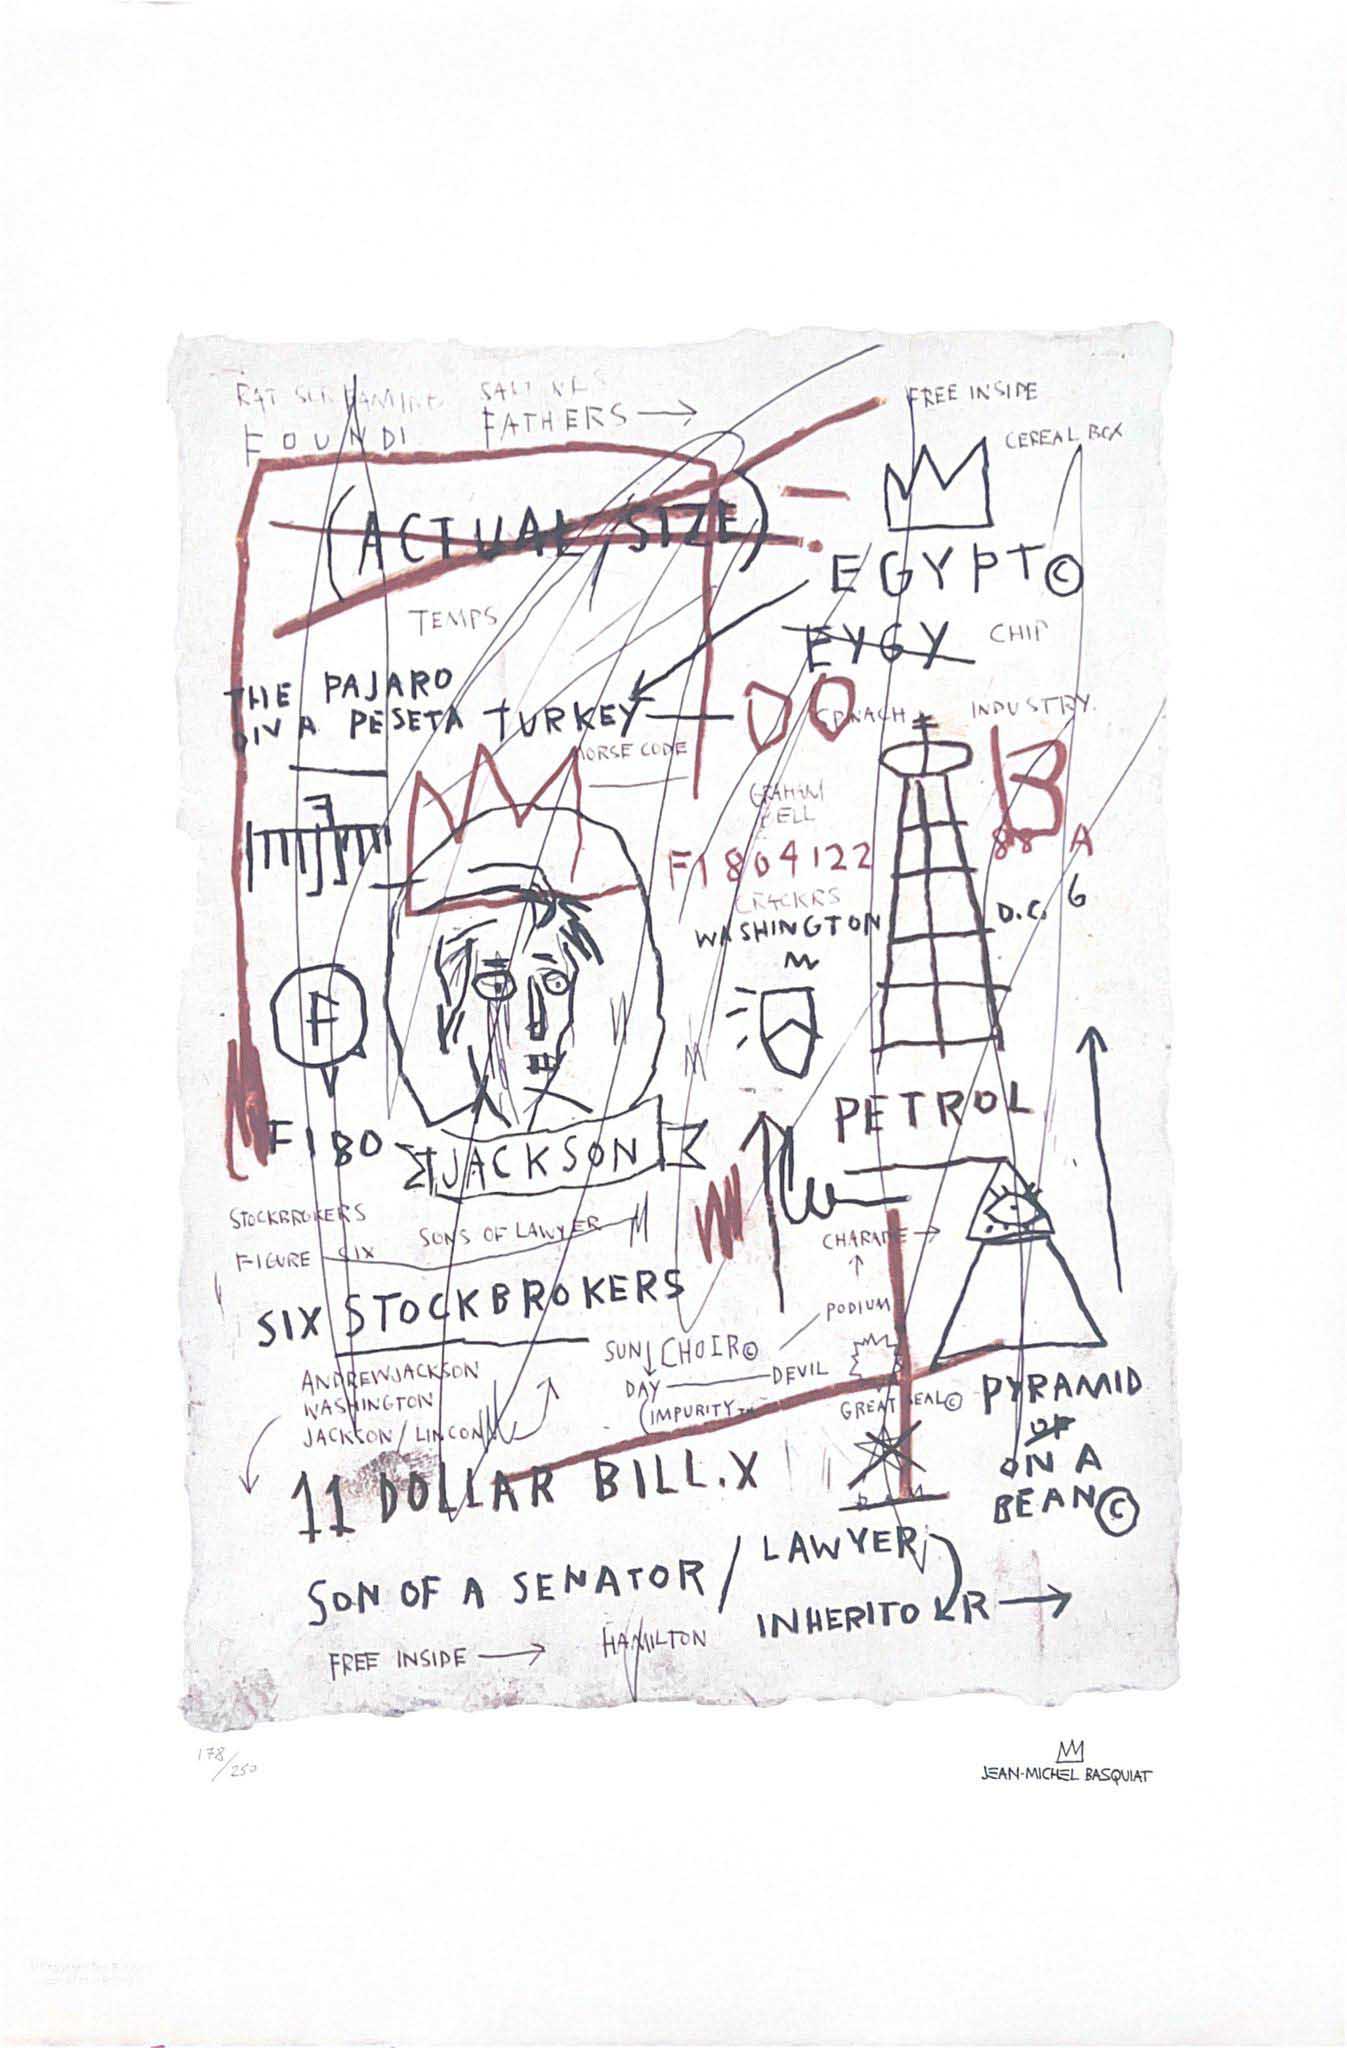 RAT
SALTINES
FOUNDI
FATHERS
FREE INSIDE
CEREAL BOX
(ACTUAL SIZE)
EGYPT©
TEMPS
EYGY
CHIP
THE PAJARO
ON A PESETA TURKEY
SPINACH
INDUSTRY.
MORSE CODE
GRAHAM
BELL
B
88 A
6
F1804122
CRACKRS
WASHINGTON
D.C.
F
PETROL
F180
JACKSON
STOCKBROKERS
SONS OF LAWYER
FIGURE SIX
CHARADE
SIX STOCKBROKERS
PODIUM
SUN CHOIR©
ANDREWJACKSON
DAY
DEVIL
WASHINGTON
(IMPURITY TM
GREAT SEAL©
PYRAMID
JACKSON / LINCON
OF
ON A
11 DOLLAR BILL.X
BEAN©
SON OF A SENATOR / LAWYER
INHERITOR
FREE INSIDE
HAMILTON
178/250
JEAN-MICHEL BASQUIAT